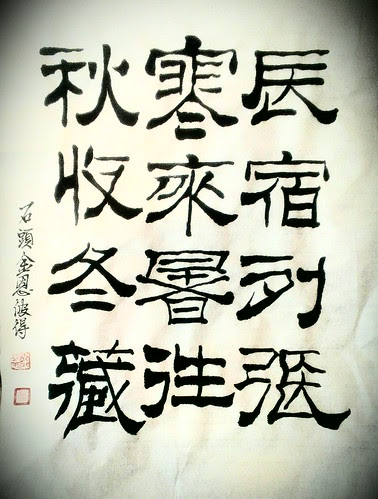 辰宿列張
寒來暑往
秋收冬藏
石頭金恩彼得